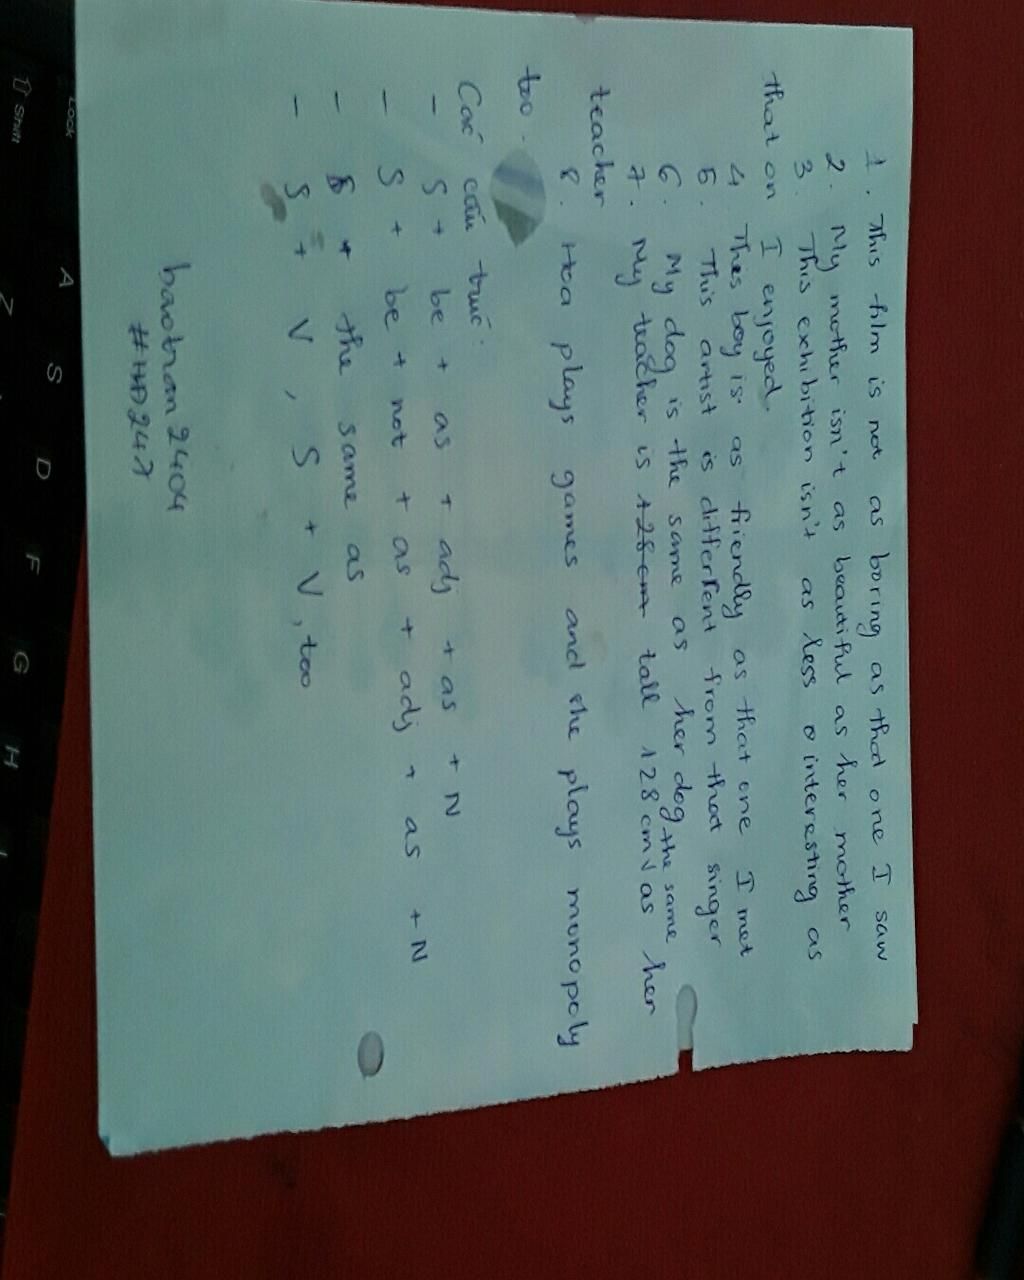 1. This film is not as boring as that one I saw
2. My mother isn't as beautiful as her mother
3. This exhibition isn't as less interesting as
that on I enjoyed.
4 This boy is as friendly as that one I met
5. This artist is different from that singer
6. My dog is the same as her dog
7. My teacher is tall 128 cm the same as her
teacher
8. Hoa plays games and she plays monopoly
too.
Các cấu trúc:
- S + be + as + adj + as + N
- S + be + not + as + adj + as + N
- S + the same as
- S + V, S + V, too
baotran2404
#HA247
Lock
Shift
A S D F G H
Z